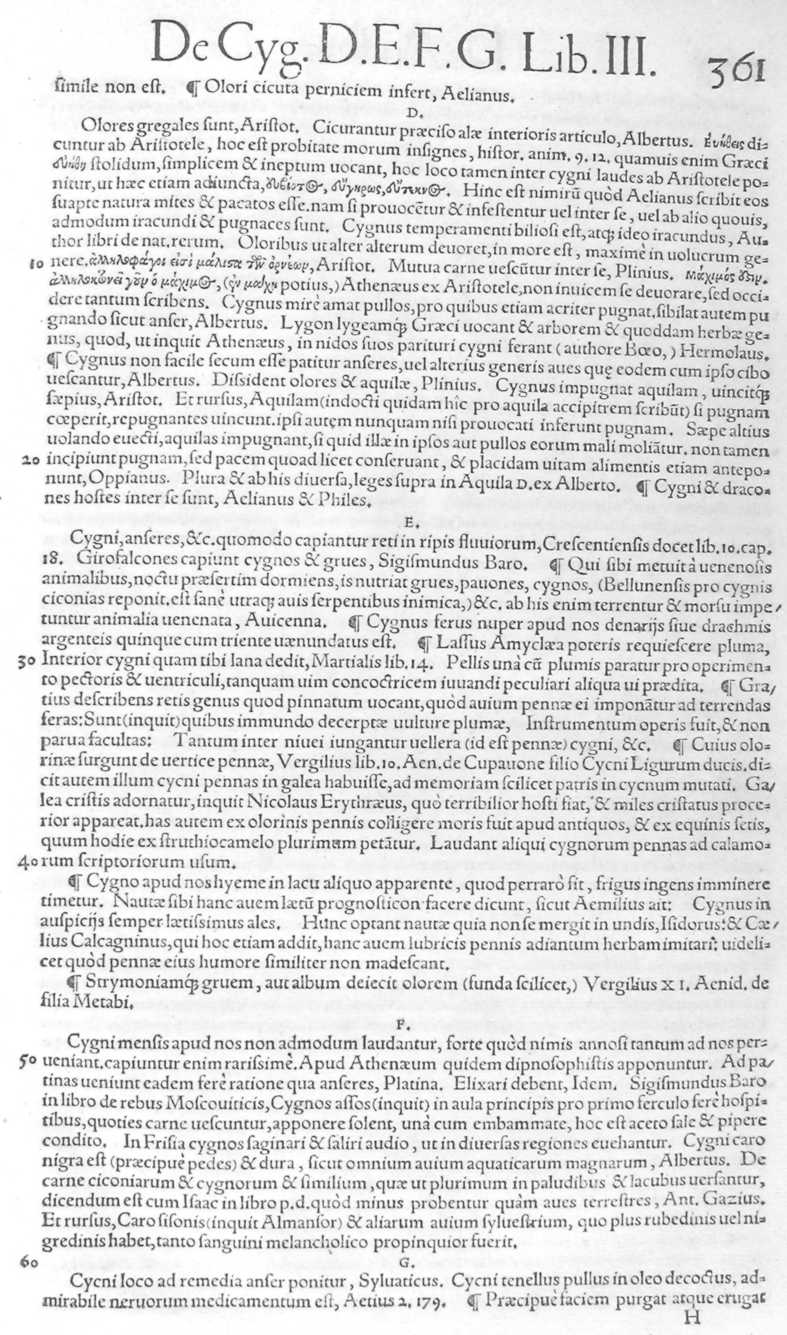 De Cyg. D.E.F.G. Lib. III. 361
ſimile non eſt. ¶ Olori cicuta perniciem infert, Aelianus.
D.
Olores gregales ſunt, Ariſtot. Cicurantur præciſo alæ interioris articulo, Albertus. Εὐήθεις di-
cuntur ab Ariſtotele, hoc eſt probitate morum inſignes, hiſtor. anim. 9. 12. quamuis enim Græci
εὐήθη ſtolidum, ſimplicem & ineptum uocant, hoc loco tamen inter cygni laudes ab Ariſtotele po-
nitur, ut hæc etiam adiuncta, εὐβίοτος, εὔγηρως, εὔτεκνος. Hinc eſt nimirũ quòd Aelianus ſcribit eos
ſuapte natura mites & pacatos eſſe. nam ſi prouocẽtur & infeſtentur uel inter ſe, uel ab alio quouis,
admodum iracundi & pugnaces ſunt. Cygnus temperamenti bilioſi eſt, atqꝫ ideo iracundus, Au-
thor libri de nat. rerum. Oloribus ut alter alterum deuoret, in more eſt, maximè in uolucrum ge-
10 nere. ἀλληλοφάγοι εἰσὶ μάλιστα τῶν ὀρνέων, Ariſtot. Mutua carne ueſcũtur inter ſe, Plinius. μάχιμος
ἀλληλοκτονεῖ γὰρ ὁ μάχιμος, potius,) Athenæus ex Ariſtotele, non inuicem ſe deuorare, ſed occi-
dere tantum ſcribens. Cygnus mirè amat pullos, pro quibus etiam acriter pugnat, ſibilat autem pu
gnando ſicut anſer, Albertus. Lygon lygeamqꝫ Græci uocant & arborem & quoddam herbæ ge-
nus, quod, ut inquit Athenæus, in nidos ſuos parituri cygni ferant (authore Bœo,) Hermolaus.
¶ Cygnus non facile ſecum eſſe patitur anſeres, uel alterius generis aues quę eodem cum ipſo cibo
ueſcantur, Albertus. Diſsident olores & aquilæ, Plinius. Cygnus impugnat aquilam, uincitqꝫ
ſæpius, Ariſtot. Et rurſus, Aquilam (indocti quidam hîc pro aquila accipitrem ſcribũt) ſi pugnam
cœperit, repugnantes uincunt. ipſi autem nunquam niſi prouocati inferunt pugnam. Sæpe altius
uolando euecti, aquilas impugnant, ſi quid illæ in ipſos aut pullos eorum mali moliãtur. non tamen
20 incipiunt pugnam, ſed pacem quoad licet conſeruant, & placidam uitam alimentis etiam antepo-
nunt, Oppianus. Plura & ab his diuerſa, leges ſupra in Aquila D. ex Alberto. ¶ Cygni & draco-
nes hoſtes inter ſe ſunt, Aelianus & Philes.
E.
Cygni, anſeres, &c. quomodo capiantur reti in ripis fluuiorum, Creſcentienſis docet lib. 10. cap.
18. Girofalcones capiunt cygnos & grues, Sigiſmundus Baro. ¶ Qui ſibi metuit à uenenoſis
animalibus, noctu præſertim dormiens, is nutriat grues, pauones, cygnos, (Bellunenſis pro cygnis
ciconias reponit. eſt ſanè utraqꝫ auis ſerpentibus inimica,) &c. ab his enim terrentur & morſu impe-
tuntur animalia uenenata, Auicenna. ¶ Cygnus ferus nuper apud nos denarijs ſiue drachmis
argenteis quinque cum triente uænundatus eſt. ¶ Laſſus Amyclæa poteris requieſcere pluma,
30 Interior cygni quam tibi lana dedit, Martialis lib. 14. Pellis unà cũ plumis paratur pro operimen-
to pectoris & uentriculi, tanquam uim concoctricem iuuandi peculiari aliqua ui prædita. ¶ Gra-
tius deſcribens retis genus quod pinnatum uocant, quòd auium pennæ ei imponãtur ad terrendas
feras: Sunt (inquit) quibus immundo decerptæ uulture plumæ, Inſtrumentum operis fuit, & non
parua facultas: Tantum inter niuei iungantur uellera (id eſt pennæ) cygni, &c. ¶ Cuius olo-
rinæ ſurgunt de uertice pennæ, Vergilius lib. 10. Aen. de Cupauone filio Cycni Ligurum ducis. di-
cit autem illum cycni pennas in galea habuiſſe, ad memoriam ſcilicet patris in cycnum mutati. Ga-
lea criſtis adornatur, inquit Nicolaus Erythræus, quò terribilior hoſti fiat, & miles criſtatus proce-
rior appareat. has autem ex olorinis pennis colligere moris fuit apud antiquos, & ex equinis ſetis,
quum hodie ex ſtruthiocamelo plurimum petãtur. Laudant aliqui cygnorum pennas ad calamo-
40 rum ſcriptoriorum uſum.
¶ Cygno apud nos hyeme in lacu aliquo apparente, quod perrarò fit, frigus ingens imminere
timetur. Nautæ ſibi hanc auem lætũ prognoſticon facere dicunt, ſicut Aemilius ait: Cygnus in
auſpicijs ſemper lætiſsimus ales. Hunc optant nautæ quia non ſe mergit in undis, Iſidorus: & Cæ-
lius Calcagninus, qui hoc etiam addit, hanc auem lubricis pennis adiantum herbam imitari: uideli-
cet quòd pennæ eius humore ſimiliter non madeſcant.
¶ Strymoniamqꝫ gruem, aut album deiecit olorem (funda ſcilicet,) Vergilius XI. Aenid. de
filia Metabi.
F.
Cygni menſis apud nos non admodum laudantur, forte quòd nimis annoſi tantum ad nos per-
50 ueniant. capiuntur enim rariſsimè. Apud Athenæum quidem dipnoſophiſtis apponuntur. Ad pa-
tinas ueniunt eadem ferè ratione qua anſeres, Platina. Elixari debent, Idem. Sigiſmundus Baro
in libro de rebus Moſcouiticis, Cygnos aſſos (inquit) in aula principis pro primo ferculo ferè hoſpi-
tibus, quoties carne ueſcuntur, apponere ſolent, unà cum embammate, hoc eſt aceto ſale & pipere
condito. In Friſia cygnos ſaginari & ſaliri audio, ut in diuerſas regiones euehantur. Cygni caro
nigra eſt (præcipuè pedes) & dura, ſicut omnium auium aquaticarum magnarum, Albertus. De
carne ciconiarum & cygnorum & ſimilium, quæ ut plurimum in paludibus & lacubus uerſantur,
dicendum eſt cum Iſaac in libro p.d. quòd minus probentur quàm aues terreſtres, Ant. Gazius.
Et rurſus, Caro ſiſonis (inquit Almanſor) & aliarum auium ſylueſtrium, quo plus rubedinis uel ni-
gredinis habet, tanto ſanguini melancholico propinquior fuerit.
60
G.
Cycni loco ad remedia anſer ponitur, Syluaticus. Cycni tenellus pullus in oleo decoctus, ad-
mirabile neruorum medicamentum eſt, Aetius 2. 179. ¶ Præcipuè faciem purgat atque erugat
H